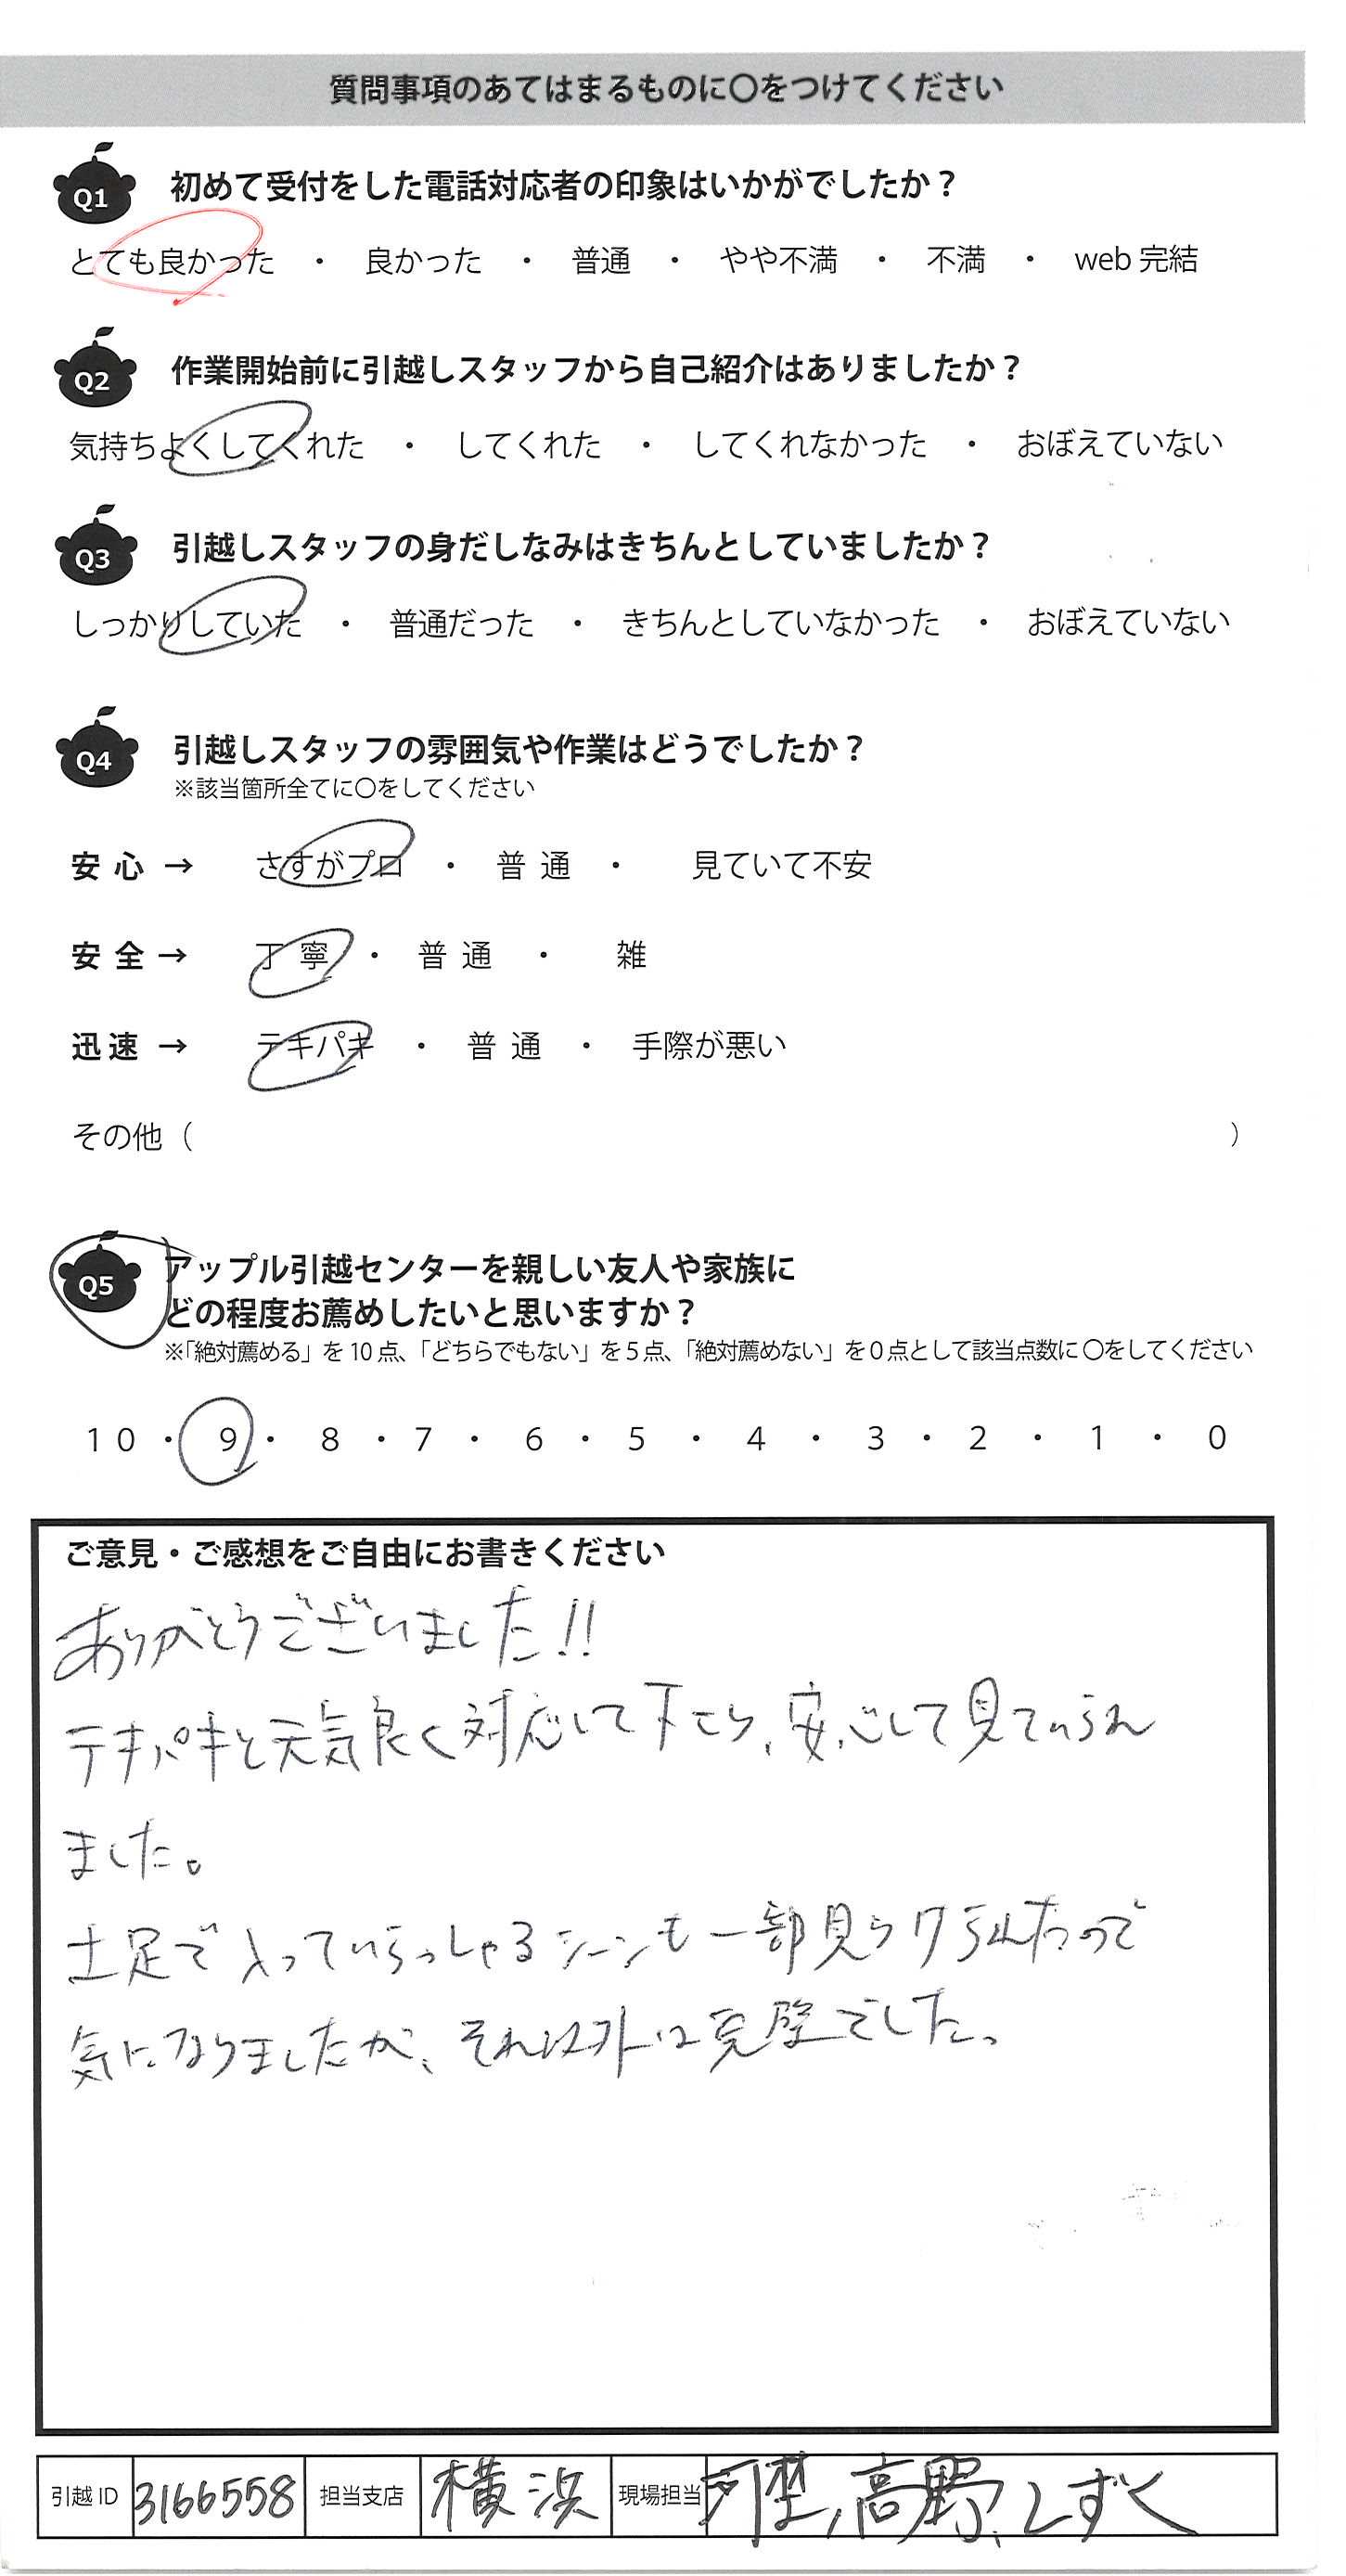 質問事項のあてはまるものに〇をつけてください
Q1 初めて受付をした電話対応者の印象はいかがでしたか？
とても良かった ・ 良かった ・ 普通 ・ やや不満 ・ 不満 ・ web 完結
Q2 作業開始前に引越しスタッフから自己紹介はありましたか？
気持ちよくしてくれた ・ してくれた ・ してくれなかった ・ おぼえていない
Q3 引越しスタッフの身だしなみはきちんとしていましたか？
しっかりしていた ・ 普通だった ・ きちんとしていなかった ・ おぼえていない
Q4 引越しスタッフの雰囲気や作業はどうでしたか？
※該当箇所全てに〇をしてください
安心 → さすがプロ ・ 普通 ・ 見ていて不安
安全 → 丁寧 ・ 普通 ・ 雑
迅速 → テキパキ ・ 普通 ・ 手際が悪い
その他（ ）
Q5 アップル引越センターを親しい友人や家族に
どの程度お薦めしたいと思いますか？
※「絶対薦める」を10点、「どちらでもない」を5点、「絶対薦めない」を0点として該当点数に〇をしてください
10 ・ 9 ・ 8 ・ 7 ・ 6 ・ 5 ・ 4 ・ 3 ・ 2 ・ 1 ・ 0
ご意見・ご感想をご自由にお書きください
ありがとうございました!!
テキパキと元気良く対応して下さり、安心して見ていられ
ました。
土足で入っていらっしゃるシーンも一部見うけられたので
気になりましたが、それ以外は完璧でした。
引越ID 3166558 担当支店 横浜 現場担当 高野、しずく